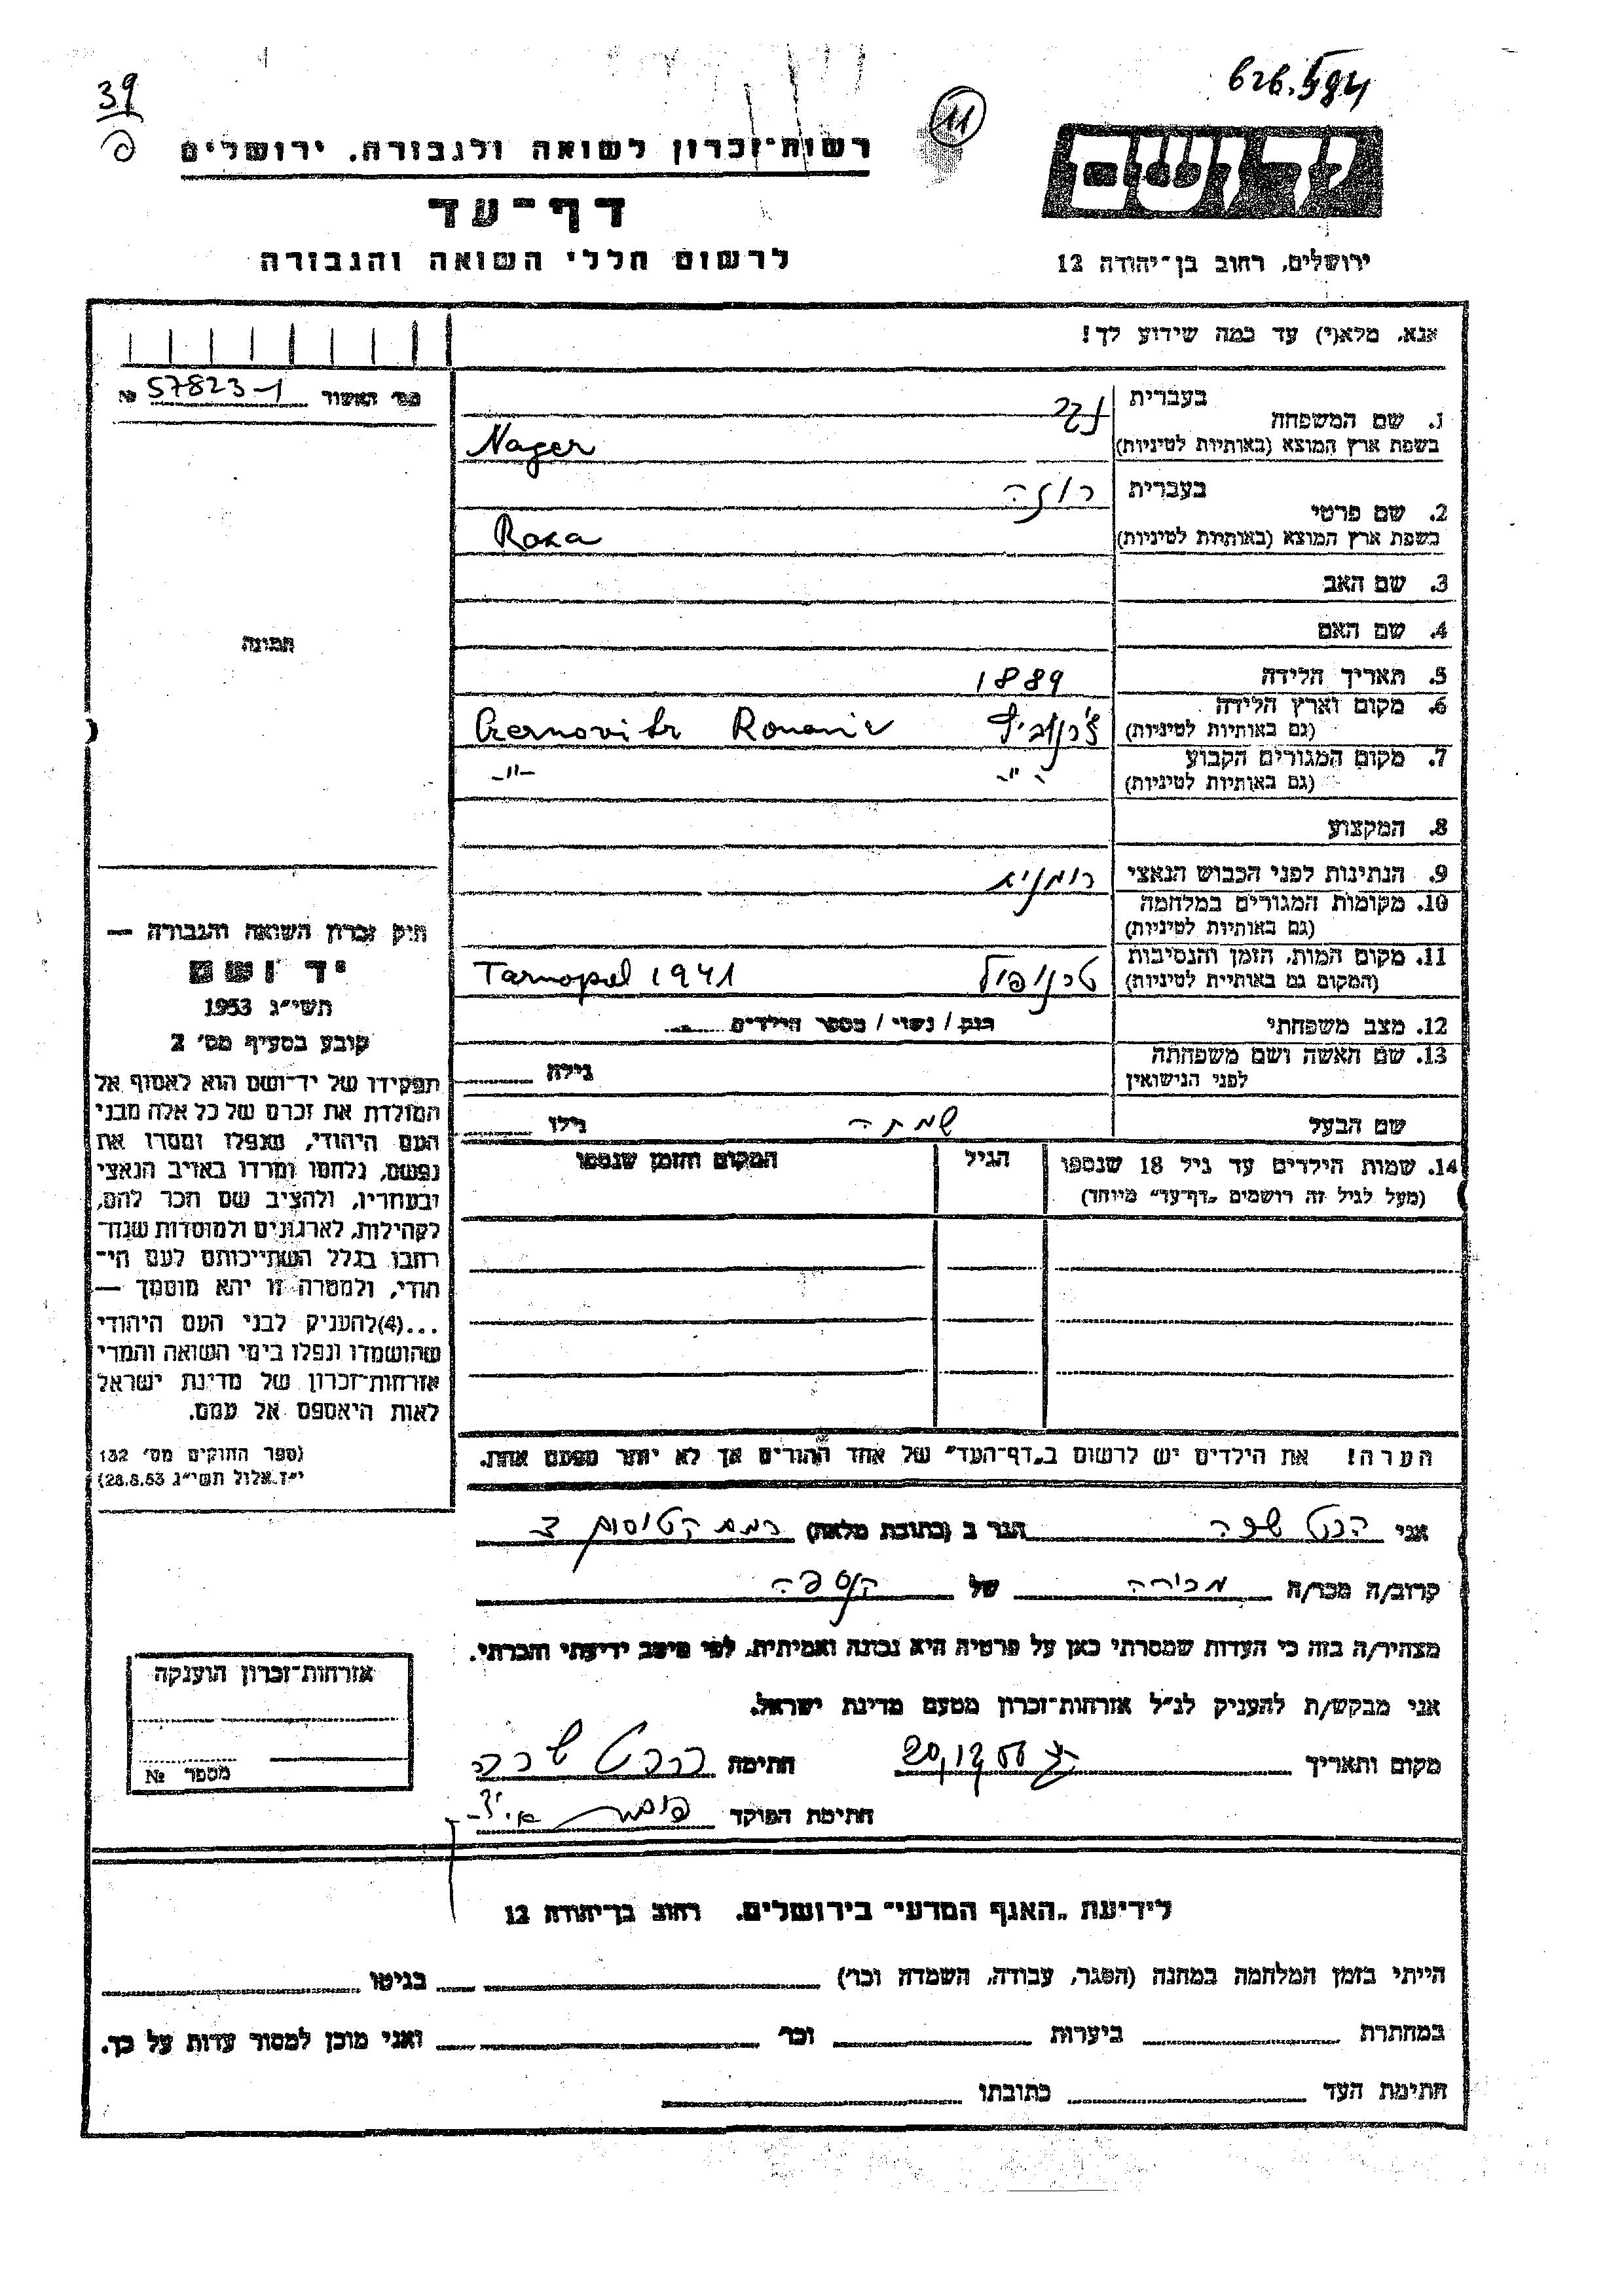 39
11
רשות־זכרון לשואה ולגבורה. ירושלים
דף־עד
לרשום חללי השואה והגבורה
ירושלים, רחוב בן־יהודה 12
אנא, מלא(י) עד כמה שידוע לך!
מס׳ האשור 57823-1 №
תמונה
1. שם המשפחה
בעברית
בשפת ארץ המוצא (באותיות לטיניות) Nager
2. שם פרטי
בעברית רוזה
בשפת ארץ המוצא (באותיות לטיניות) Roza
3. שם האב
4. שם האם
5. תאריך הלידה 1889
6. מקום וארץ הלידה
(גם באותיות לטיניות)
7. מקום המגורים הקבוע -"- -"-
(גם באותיות לטיניות)
8. המקצוע
9. הנתינות לפני הכבוש הנאצי רומניא
10. מקומות המגורים במלחמה
(גם באותיות לטיניות)
11. מקום המות, הזמן והנסיבות טרנופול Tarnopol 1941
(המקום גם באותיות לטיניות)
12. מצב משפחתי רווק / נשוי / מספר הילדים
13. שם האשה ושם משפחתה
לפני הנישואין
גילה
שם הבעל שמחה גילו
14. שמות הילדים עד גיל 18 שנספו הגיל המקום והזמן שנספו
(מעל לגיל זה רושמים „דף־עד״ מיוחד)
הערה! את הילדים יש לרשום ב„דף־העד״ של אחד ההורים אך לא יותר מפעם אחת.
חוק זכרון השואה והגבורה —
יד ושם
תשי״ג 1953
קובע בסעיף מס׳ 2
תפקידו של יד־ושם הוא לאסוף אל
המולדת את זכרם של כל אלה מבני
העם היהודי, שנפלו ומסרו את
נפשם, נלחמו ומרדו באויב הנאצי
ובעוזריו, ולהציב שם וזכר להם,
לקהילות, לארגונים ולמוסדות שנח־
רבו בגלל השתייכותם לעם הי־
הודי, ולמטרה זו יהא מוסמך —
...(4)להעניק לבני העם היהודי
שהושמדו ונפלו בימי השואה והמרי
אזרחות־זכרון של מדינת ישראל
לאות היאספם אל עמם.
(ספר החוקים מס׳ 132
י״ז אלול תשי״ג 28.8.53)
אני שרה הגר ב (כתובת מלאה)
קרוב/ה מכר/ה מכירה של הנספה
מצהיר/ה בזה כי העדות שמסרתי כאן על פרטיה היא נכונה ואמיתית, לפי מיטב ידיעתי והכרתי.
אני מבקש/ת להעניק לנ״ל אזרחות־זכרון מטעם מדינת ישראל.
מקום ותאריך חתימה שרה
חתימת הפוקד
אזרחות־זכרון הוענקה
מספר №
לידיעת „האגף המדעי״ בירושלים. רחוב בן־יהודה 12
הייתי בזמן המלחמה במחנה (הסגר, עבודה, השמדה וכו׳) בגיטו
במחתרת ביערות וכו׳ ואני מוכן למסור עדות על כך.
חתימת העד כתובתו